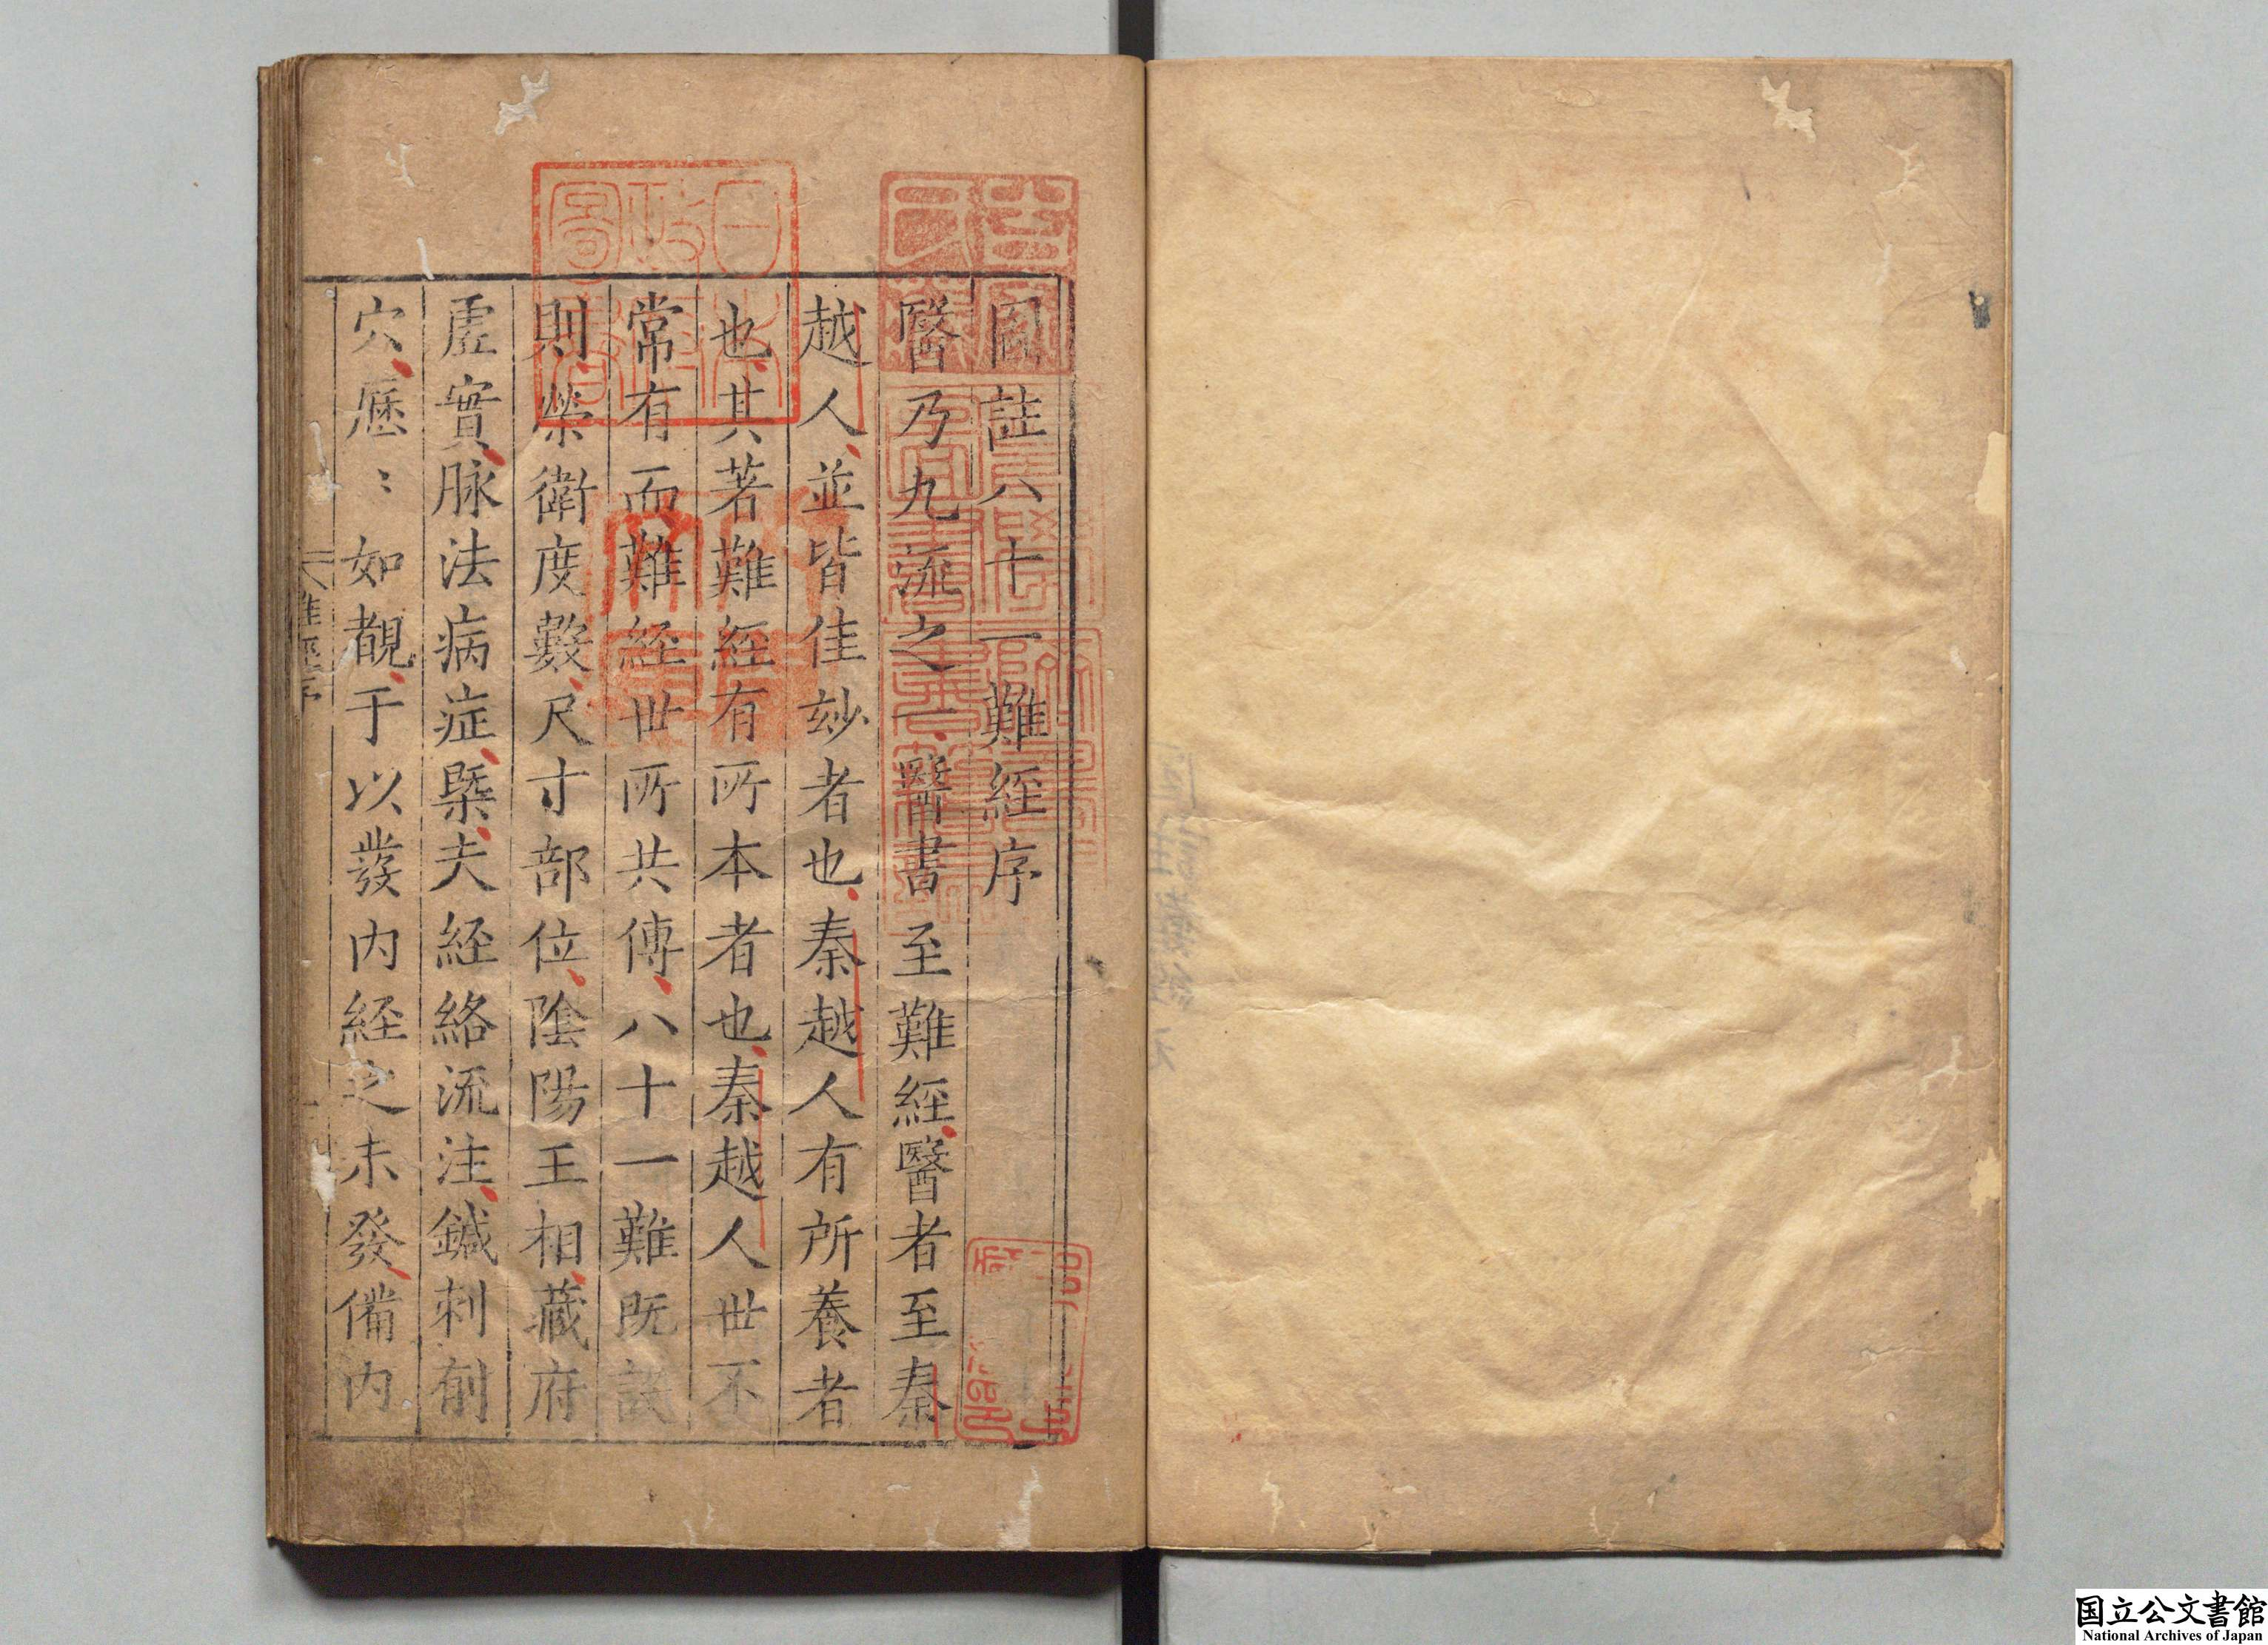 圖註八十一難經序
醫乃九流之一醫書至難經醫者至秦
越人並皆佳妙者也秦越人有所養者
也其著難經有所本者也秦越人世不
常有而難經世所共傳八十一難既設
則榮衛度數尺寸部位陰陽王相藏府
虛實脉法病症槩夫經絡流注鍼刺劑
穴歷〻如覩于以發內經之未發備內
難經序
日本
政府
圖書
国立公文書館
National Archives of Japan